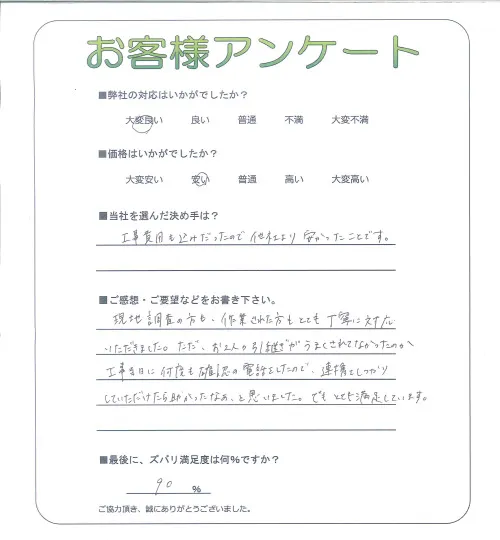 お客様アンケート
■弊社の対応はいかがでしたか？
大変良い 良い 普通 不満 大変不満
■価格はいかがでしたか？
大変安い 安い 普通 高い 大変高い
■当社を選んだ決め手は？
工事費用も込みだったので他社より安かったことです。
■ご感想・ご要望などをお書き下さい。
現地調査の方も、作業された方もとても丁寧に対応
いただきました。ただ、お2人の引継ぎがうまくされてなかったのか
工事当日に何度も確認の電話をしたので、連携をしっかり
していただけたら助かったなぁ、と思いました。でもとても満足しています。
■最後に、ズバリ満足度は何％ですか？
90 ％
ご協力頂き、誠にありがとうございました。